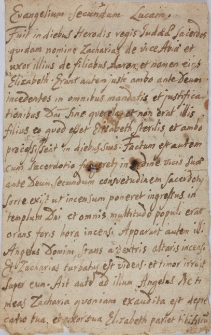 Evangelium secundum Lucam.
Fuit in diebus Herodis regis Judææ sacerdos
quidam nomine Zacharias de vice Abia et
uxor illius de filiabus Aaron et nomen ejus
Elizabeth. Erant autem justi ambo ante Deum
incedentes in omnibus mandatis et justifica
tionibus Dni sine querela, et non erat illis
filius eo quod esset Elizabeth sterilis et ambo
processissent in diebus suis. Factum est autem
cum sacerdotio fungeretur in ordine vicis suæ
ante Deum, secundum consuetudinem sacerdoty
sorte exijt ut incensum poneret ingressus in
templum Dni et omnis multitudo populi erat
orans foris hora incensi. Apparuit autem illi
Angelus Domini, stans a dextris altaris incensi
Et Zacharias turbatus est videns, et timor irruit
super eum. Ait autem ad illum Angelus Ne ti
meas Zacharia quoniam exaudita est depre
catio tua, et uxor tua Elizabeth pariet tibi